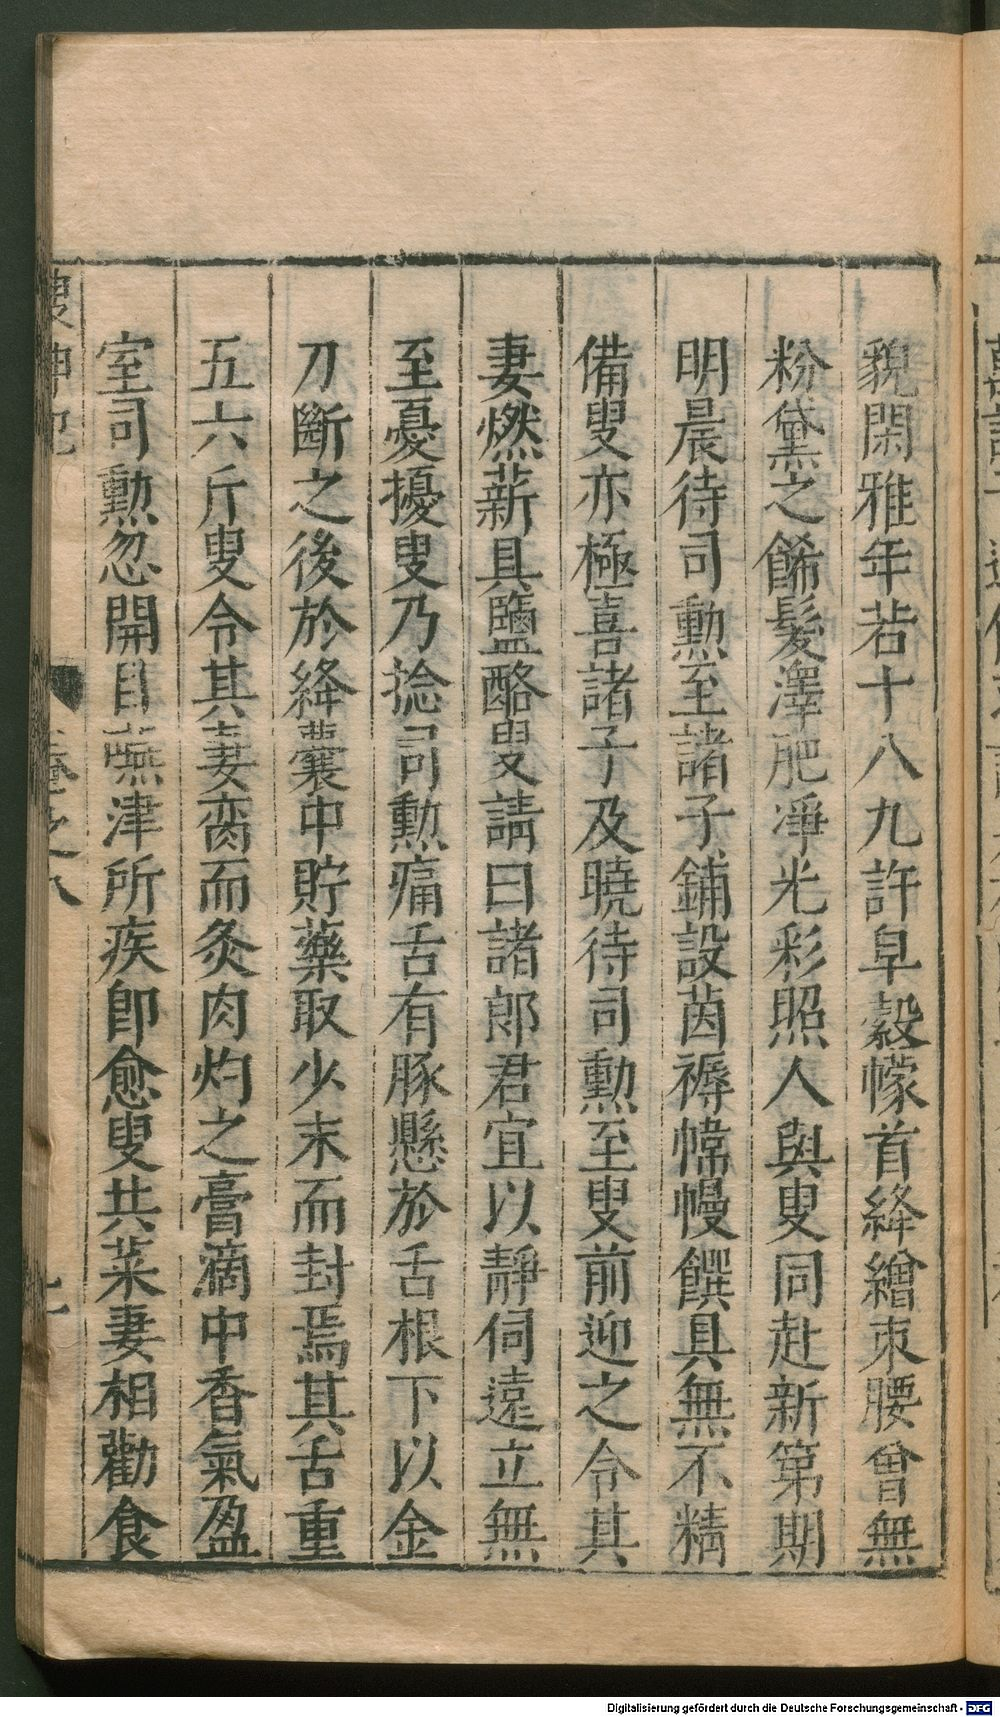 貌閑雅年若十八九許皁縠幪首絳繒束腰曾無
粉黛之餙髮澤肥淨光彩照人與叟同赴新第期
明晨待司勲至諸子鋪設茵褥幃幔饌具無不精
備叟亦極喜諸子及曉待司勲至叟前迎之令其
妻燃薪具鹽酪叟請曰諸郎君宜以靜伺遠立無
至憂擾叟乃捻司勲痛舌有豚懸於舌根下以金
刀斷之後於絳囊中貯藥取少末而封焉其舌重
五六斤叟令其妻臠而炙肉灼之膏滴中香氣盈
室司勲忽開目嚥津所疾卽愈叟共菜妻相勸食
搜神記
卷之八
Digitalisierung gefördert durch die Deutsche Forschungsgemeinschaft - DFG